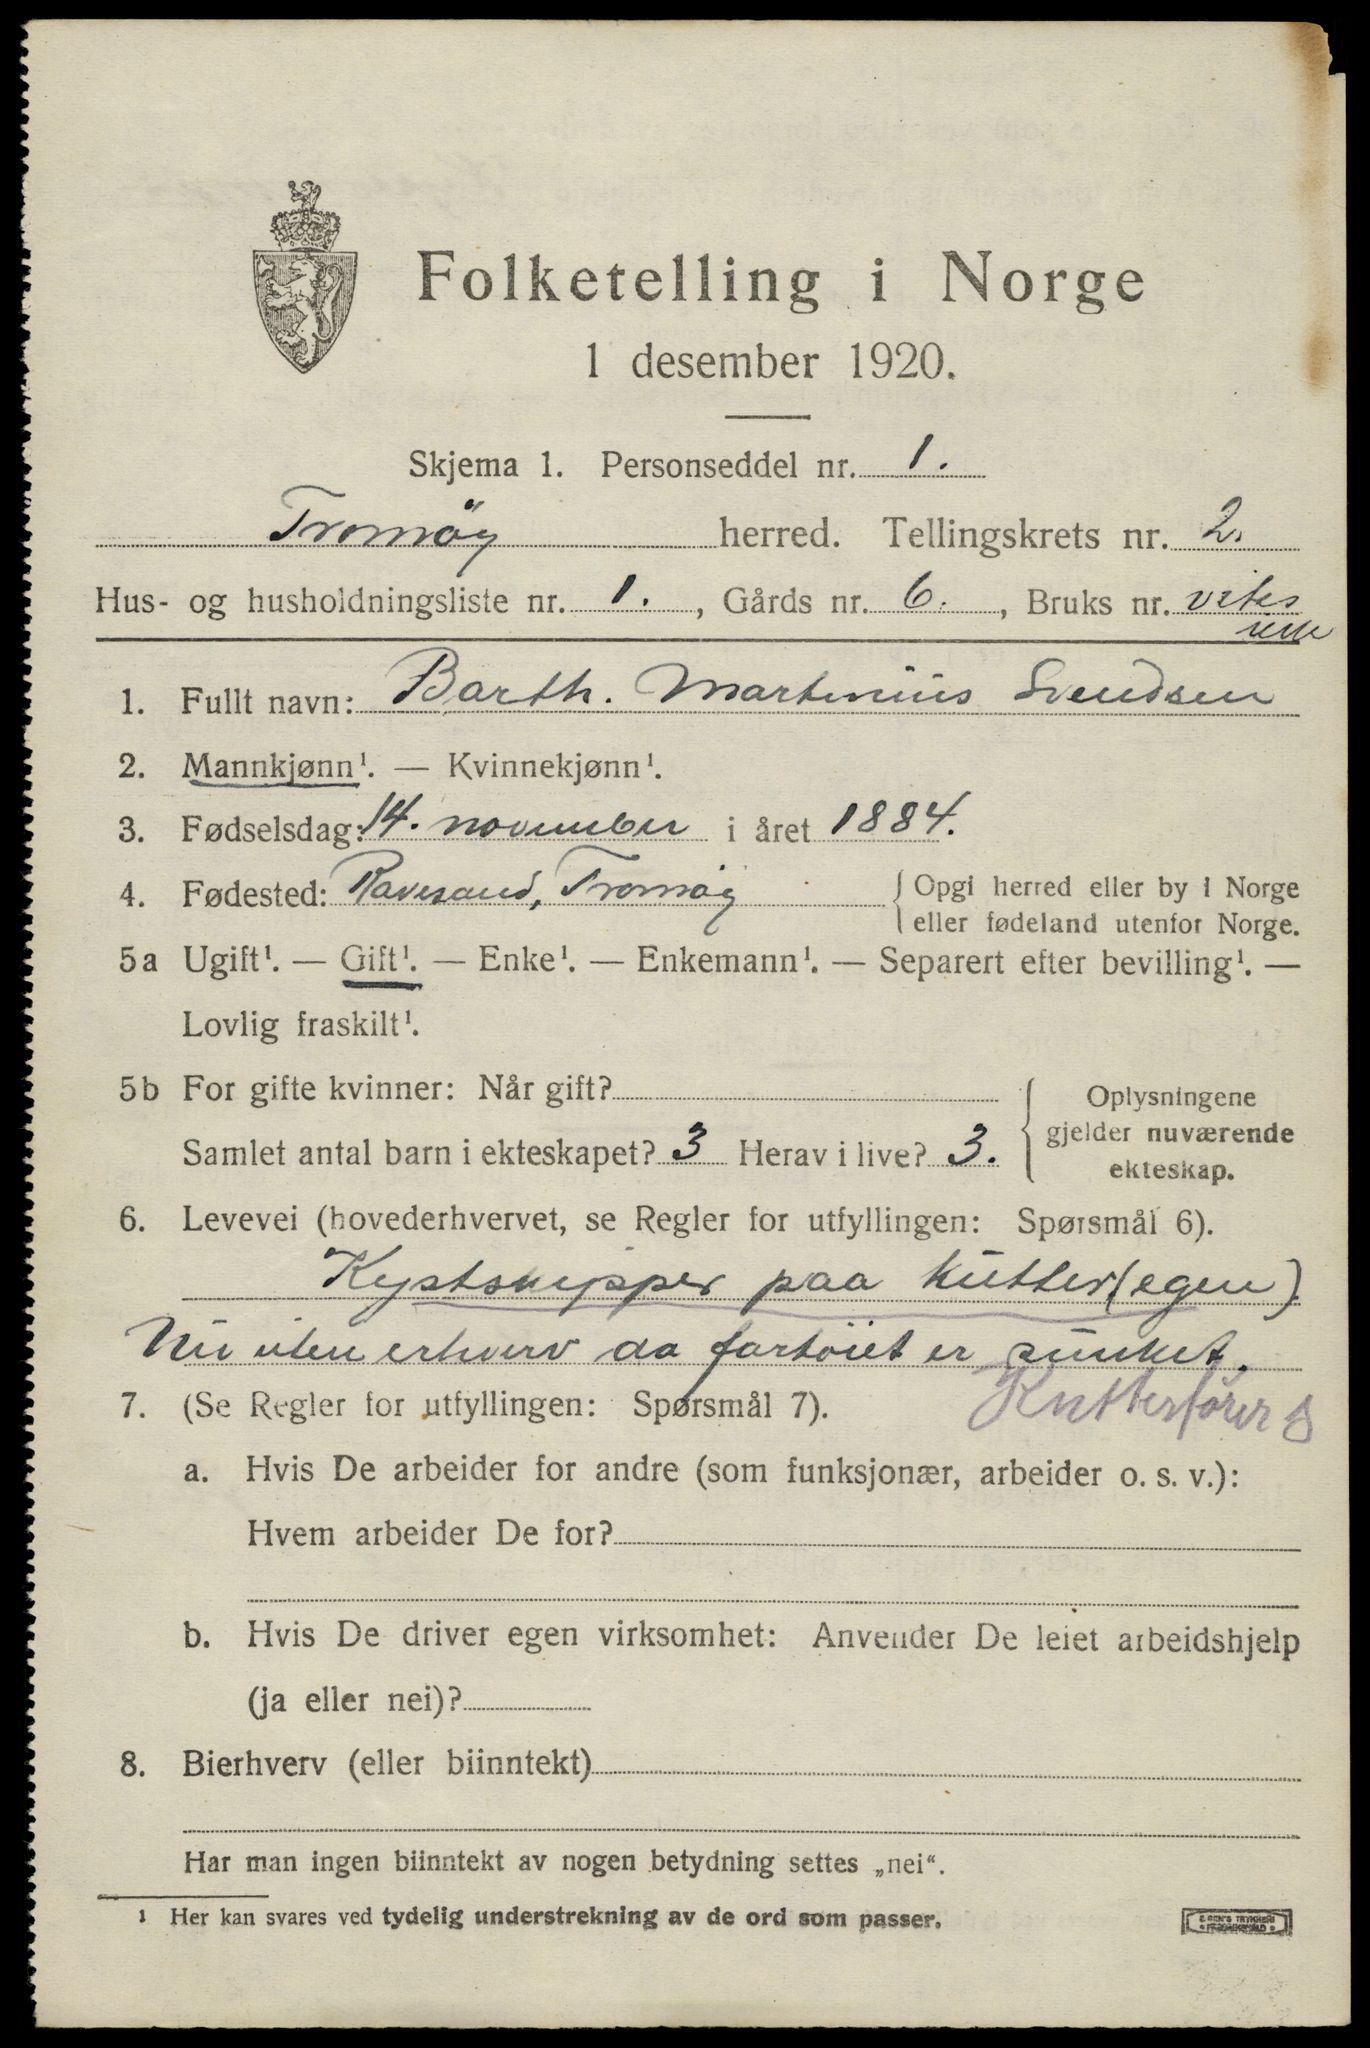 Folketelling i Norge
1 desember 1920.
Skjema 1. Personseddel nr. 1.
Tromöy herred. Tellingskrets nr. 2.
Hus- og husholdningsliste nr. 1., Gårds nr. 6., Bruks nr.
1. Fullt navn: Barth. Martinius Svendsen
2. Mannkjønn¹. — Kvinnekjønn¹.
3. Fødselsdag: 14. november i året 1884.
4. Fødested: Ravesand, Tromöy { Opgi herred eller by i Norge
eller fødeland utenfor Norge.
5a Ugift¹. — Gift¹. — Enke¹. — Enkemann¹. — Separert efter bevilling¹. —
Lovlig fraskilt¹.
5b For gifte kvinner: Når gift?
Samlet antal barn i ekteskapet? 3 Herav i live? 3.
{ Oplysningene
gjelder nuværende
ekteskap.
6. Levevei (hovederhvervet, se Regler for utfyllingen: Spørsmål 6).
Kystskipper paa kutter (egen)
Nu uten erhverv da fartöiet er sunket.
7. (Se Regler for utfyllingen: Spørsmål 7). Kutterförer
a. Hvis De arbeider for andre (som funksjonær, arbeider o. s. v.):
Hvem arbeider De for?
b. Hvis De driver egen virksomhet: Anvender De leiet arbeidshjelp
(ja eller nei)?
8. Bierhverv (eller biinntekt)
Har man ingen biinntekt av nogen betydning settes „nei“.
¹ Her kan svares ved tydelig understrekning av de ord som passer.